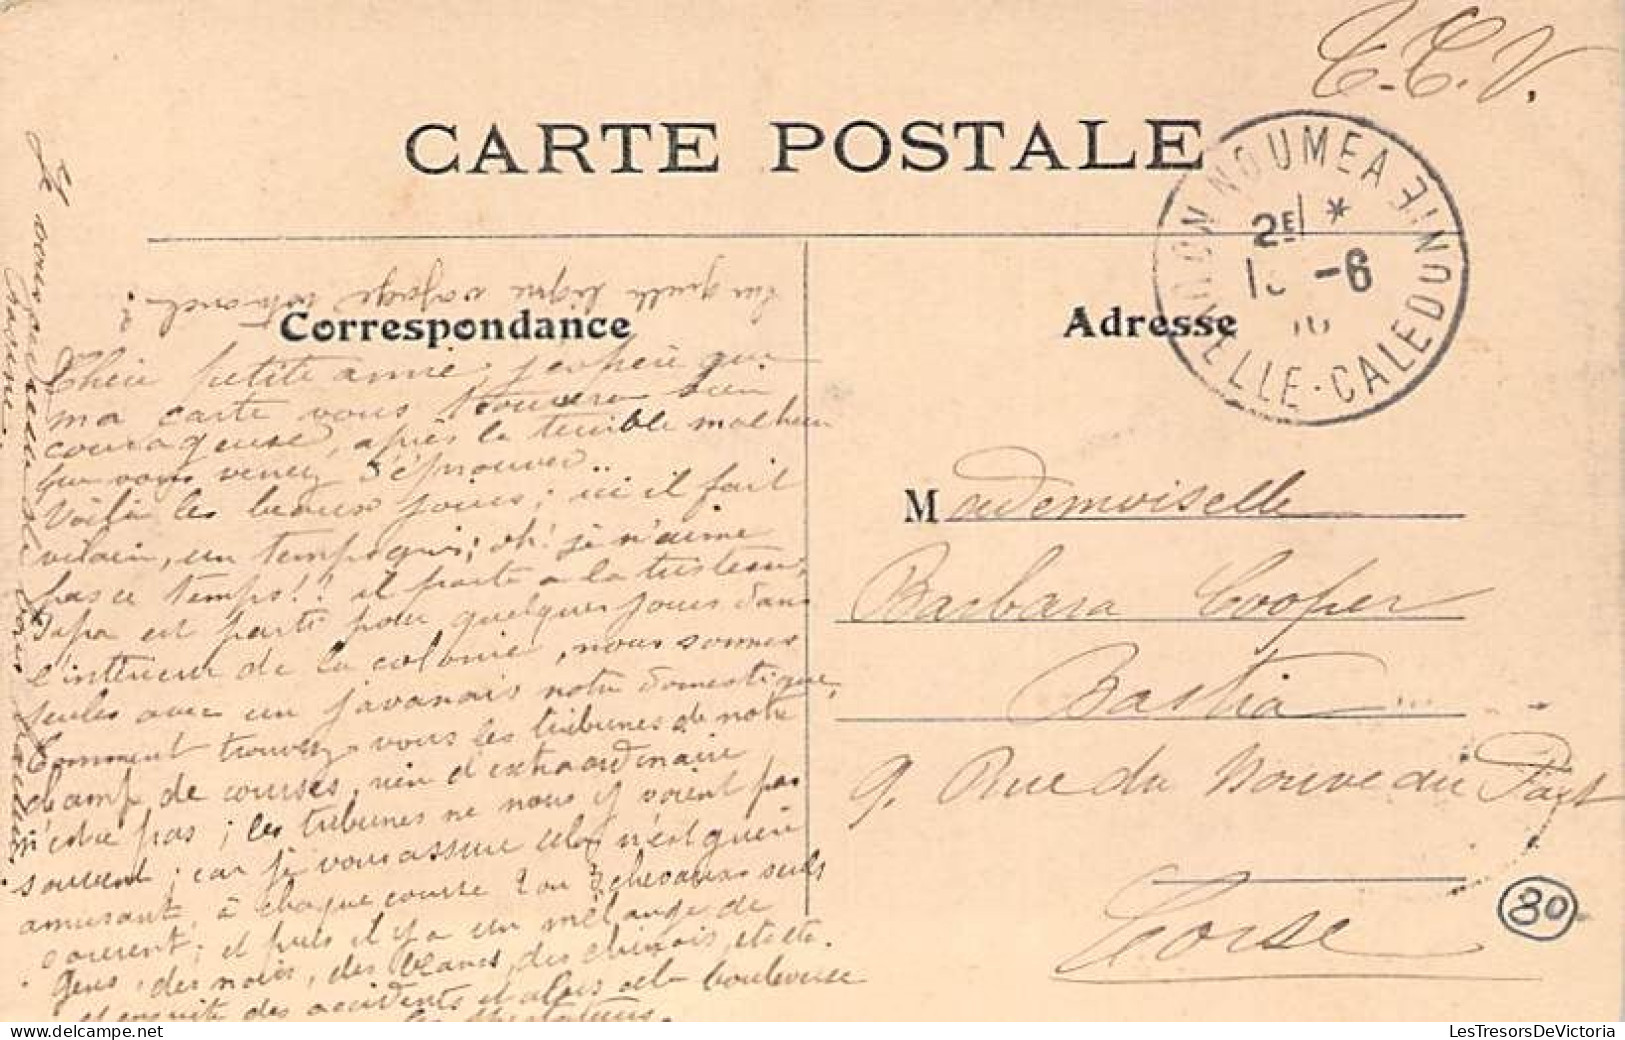 T.C.V.
CARTE POSTALE
NOUMEA
NOUVELLE-CALEDONIE
2E *
-6
Correspondance
Adresse
Chère petite amie, j'espère que
ma carte vous trouvera bien
courageuse, après le terrible malheur
que vous venez d'éprouver..
Voilà les beaux jours; ici il fait
vilain, un temps gris; oh! je n'aime
pas ce temps!! il porte à la tristesse;
Papa est parti pour quelques jours dans
l'intérieur de la colonie, nous sommes
seules avec un javanais notre domestique,
Comment trouvez-vous les tribunes de notre
champ de courses, rien d'extraordinaire
n'est-ce pas; les tribunes ne nous y voient pas
souvent; car je vous assure cela n'est guère
amusant, à chaque course 2 ou 3 chevaux seuls
courent; et puis il y a un mélange de
gens, des noirs, des blancs, des chinois, etc etc.
et ensuite des accidents et alors cela bouleverse
les spectateurs.
Mademoiselle
Barbara Cooper
Bastia
9. Rue du Nouveau Port
Corse
30
LesTresorsDeVictoria